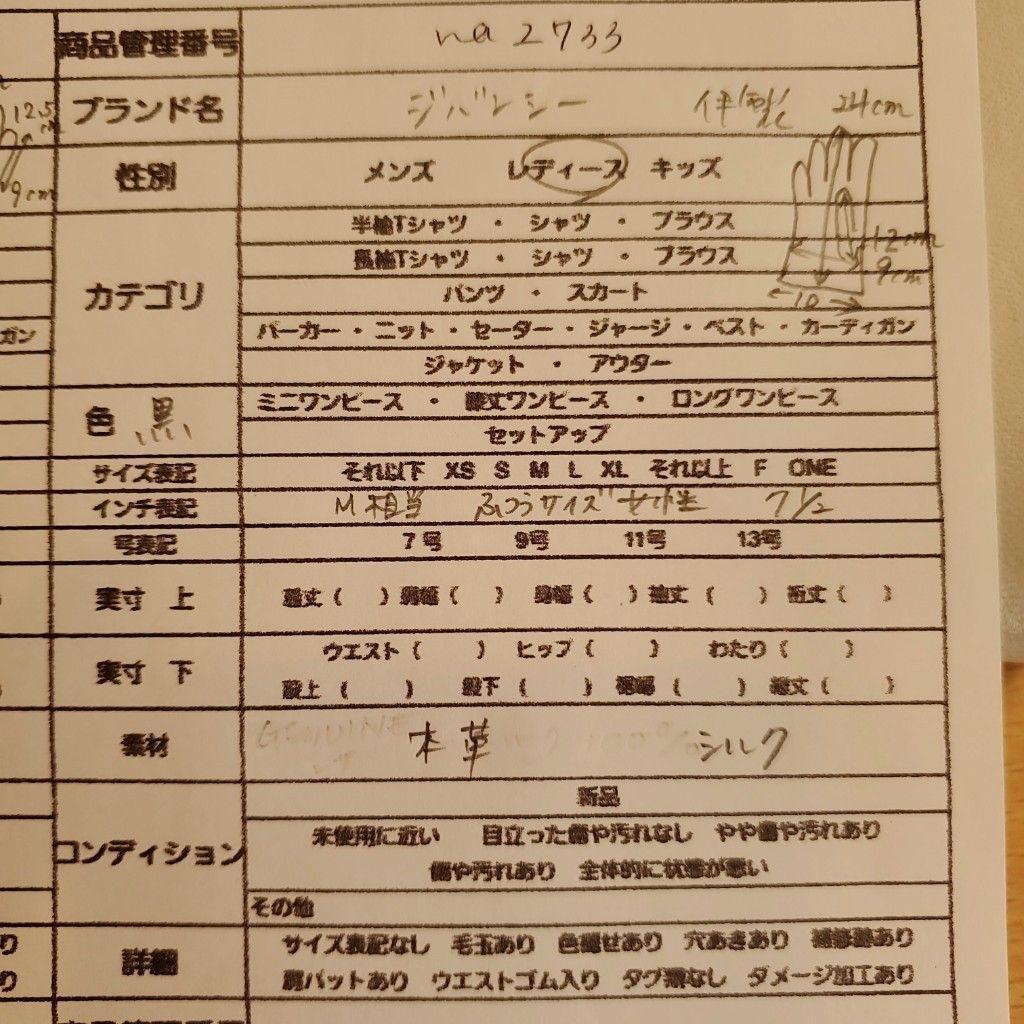 商品管理番号 na2733
ブランド名 ジバンシー 伊製 24cm
12.5cm
9cm
性別 メンズ レディース キッズ
カテゴリ
半袖Tシャツ ・ シャツ ・ ブラウス
長袖Tシャツ ・ シャツ ・ ブラウス
12cm
9cm
パンツ ・ スカート
10
ガン
パーカー・ニット・セーター・ジャージ・ベスト・カーディガン
ジャケット ・ アウター
色 黒
ミニワンピース ・ 膝丈ワンピース ・ ロングワンピース
セットアップ
サイズ表記 それ以下 XS S M L XL それ以上 F ONE
インチ表記 M相当 ふつうサイズ 女性 7 1/2
号表記 7号 9号 11号 13号
実寸 上 総丈( ) 肩幅( ) 身幅( ) 袖丈( ) 裄丈( )
実寸 下
ウエスト( ) ヒップ( ) わたり( )
股上( ) 股下( ) 裾幅( ) 総丈( )
素材 本革 シルク
コンディション
新品
未使用に近い 目立った傷や汚れなし やや傷や汚れあり
傷や汚れあり 全体的に状態が悪い
その他
詳細
り サイズ表記なし 毛玉あり 色褪せあり 穴あきあり 補修跡あり
り 肩パットあり ウエストゴム入り タグ類なし ダメージ加工あり
商品管理番号